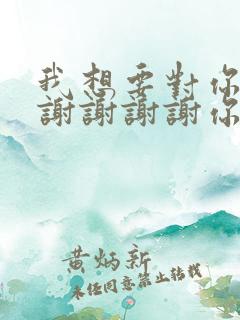 我想要對你
謝謝謝謝你
黄炳新
未任同意禁止转载